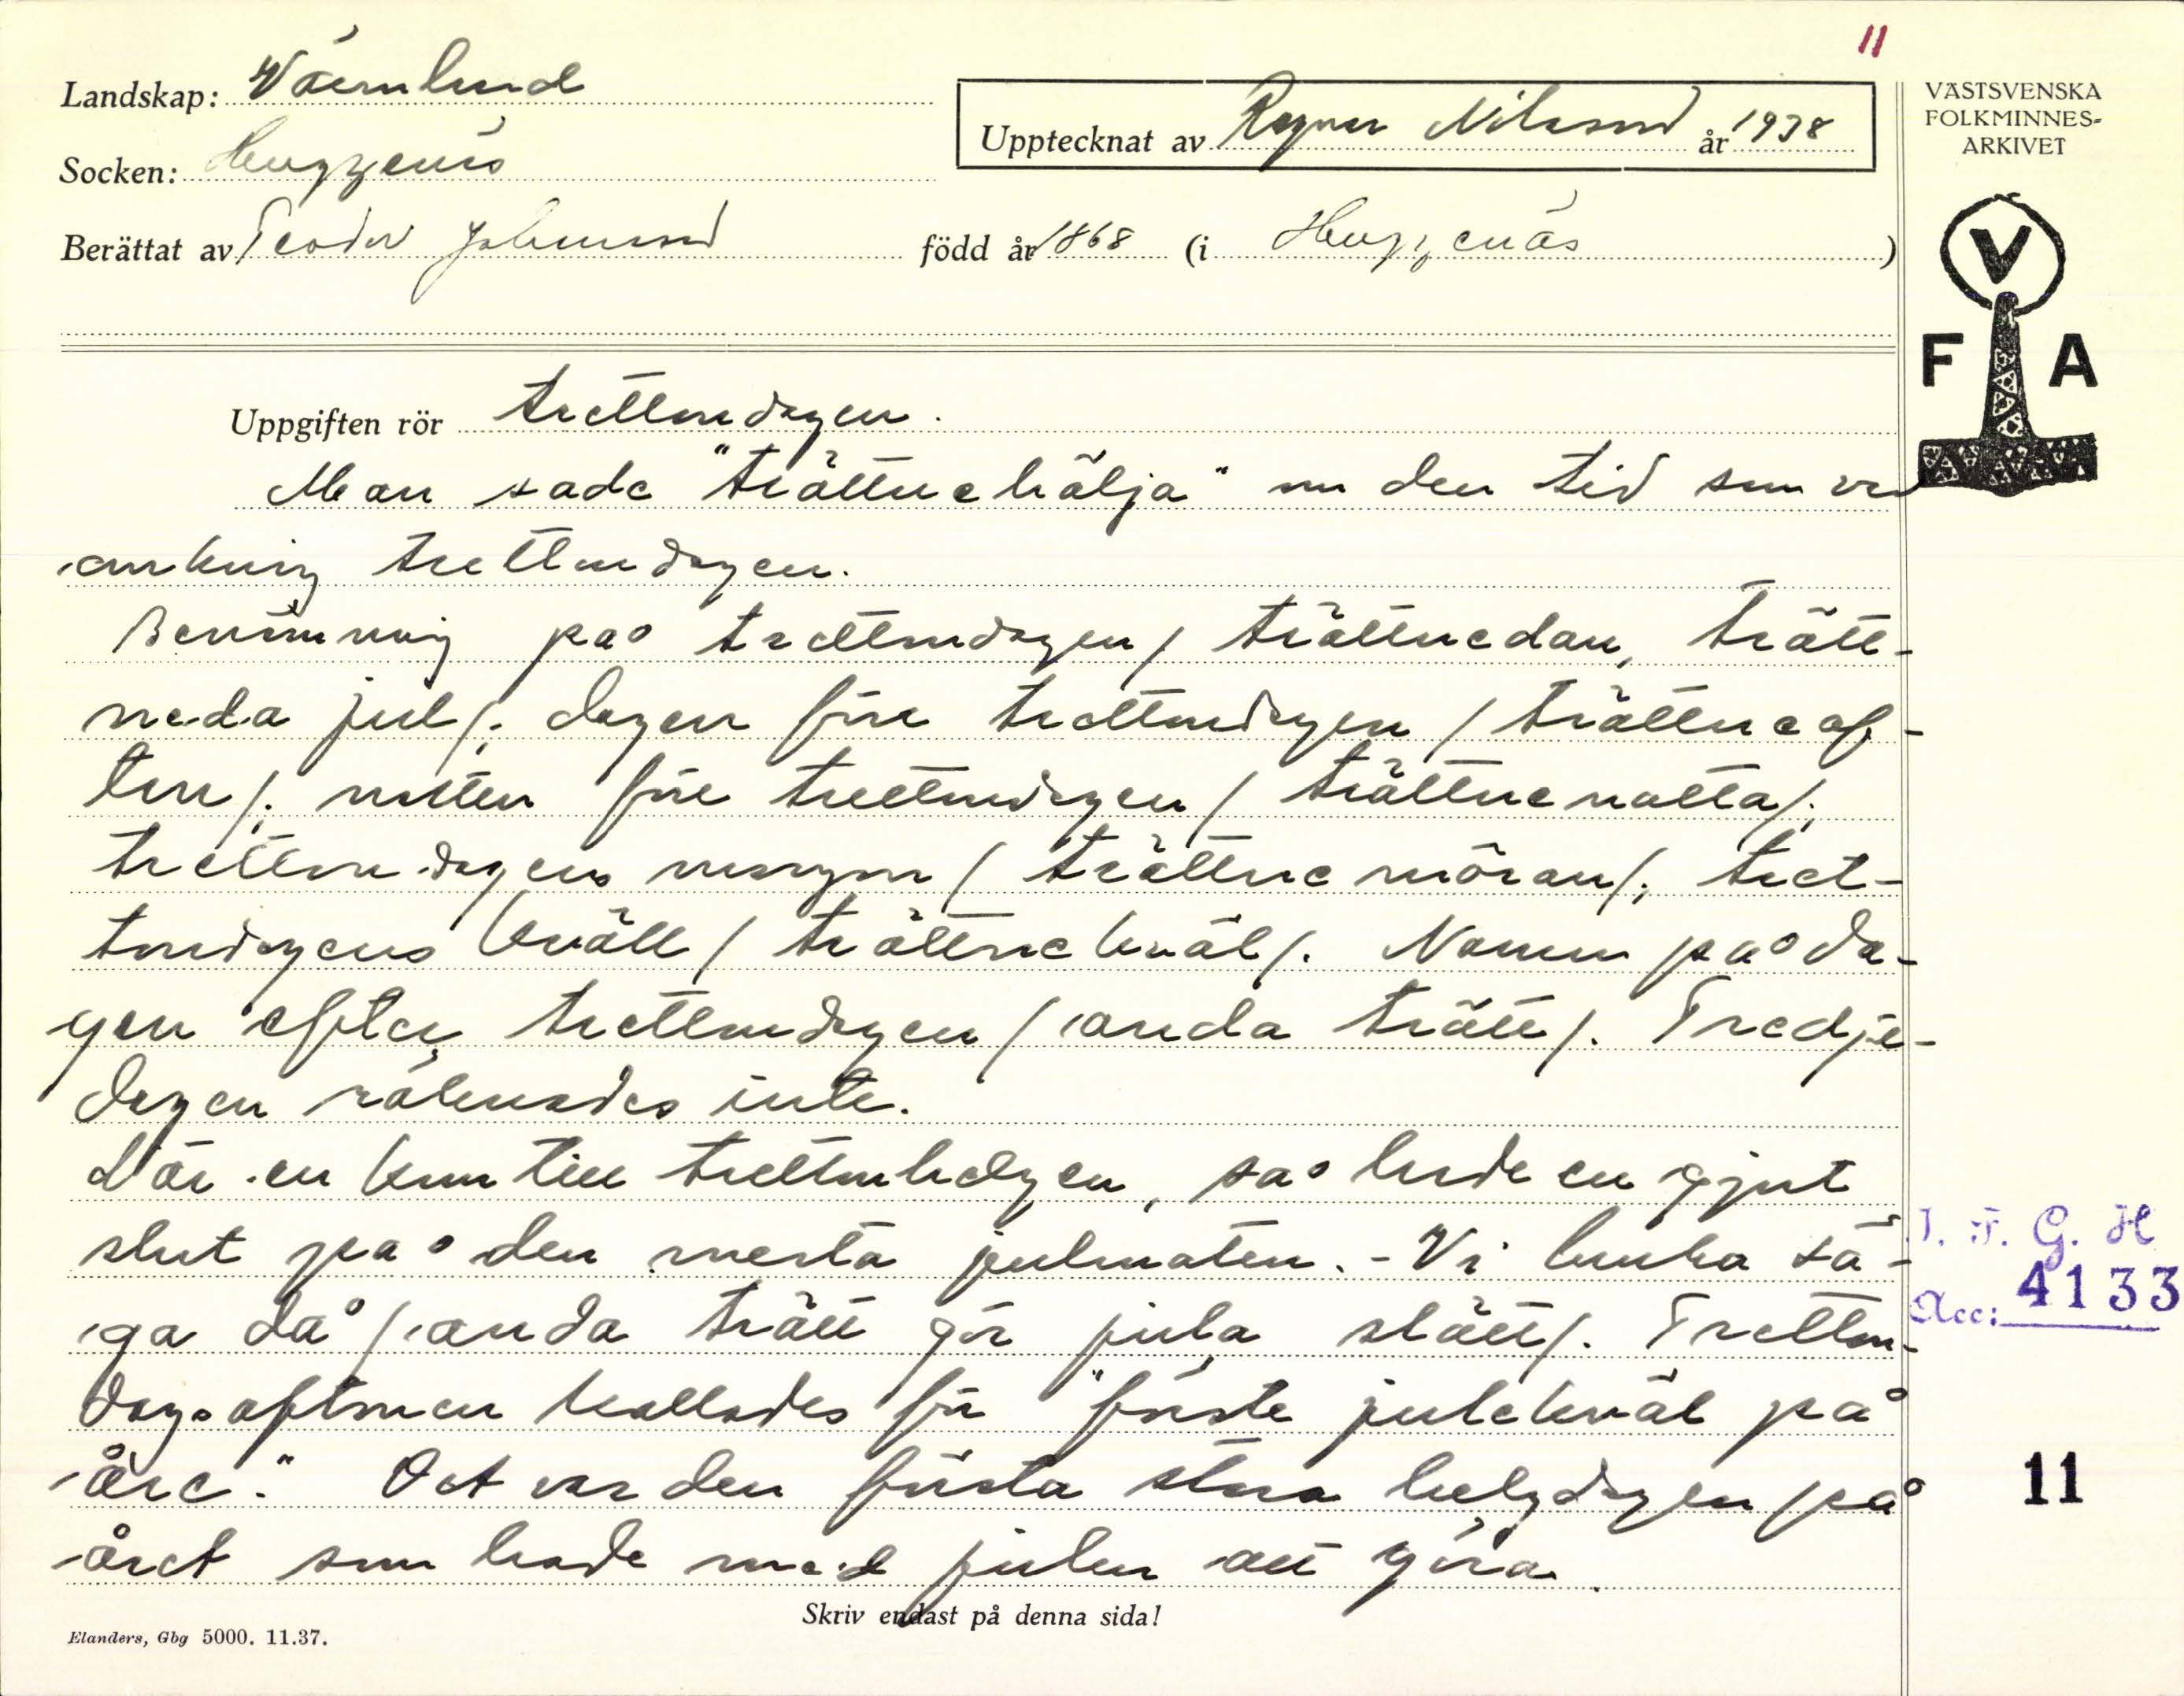 11
Landskap: Värmland
Upptecknat av Ragnar Nilsson år 1938
Socken: Huggenäs
Berättat av Teodor Johansson född år 1868 (i Huggenäs)
VÄSTSVENSKA
FOLKMINNES-
ARKIVET
V
F A
Uppgiften rör trettondagen.
Man sade "trättnehälja" om den tid som var
omkring trettondagen.
Benämning på trettondagen / trättnedan, trätt-
neda jul/. dagen före trettondagen / trättneaf-
ten/. natten före trettondagen / trättnenatta/.
trettondagens morgon / trättnemöran/, tret-
tondagens kväll / trättnekväl/. Namn på da-
gen efter trettondagen / anda trätt/. Tredje-
dagen räknades inte.
När en kom till trettonhelgen, så hade en gjort
slut på den mesta julmaten. - Vi bruka sä-
ga då / anda trätt gör jula slätt/. Tretton-
dagsaftonen kallades för "förste julekväl på
åre." Det var den första stora helgdagen på
året som hade med julen att göra.
I. F. G. H
Acc: 4133
11
Skriv endast på denna sida!
Elanders, Gbg 5000. 11.37.